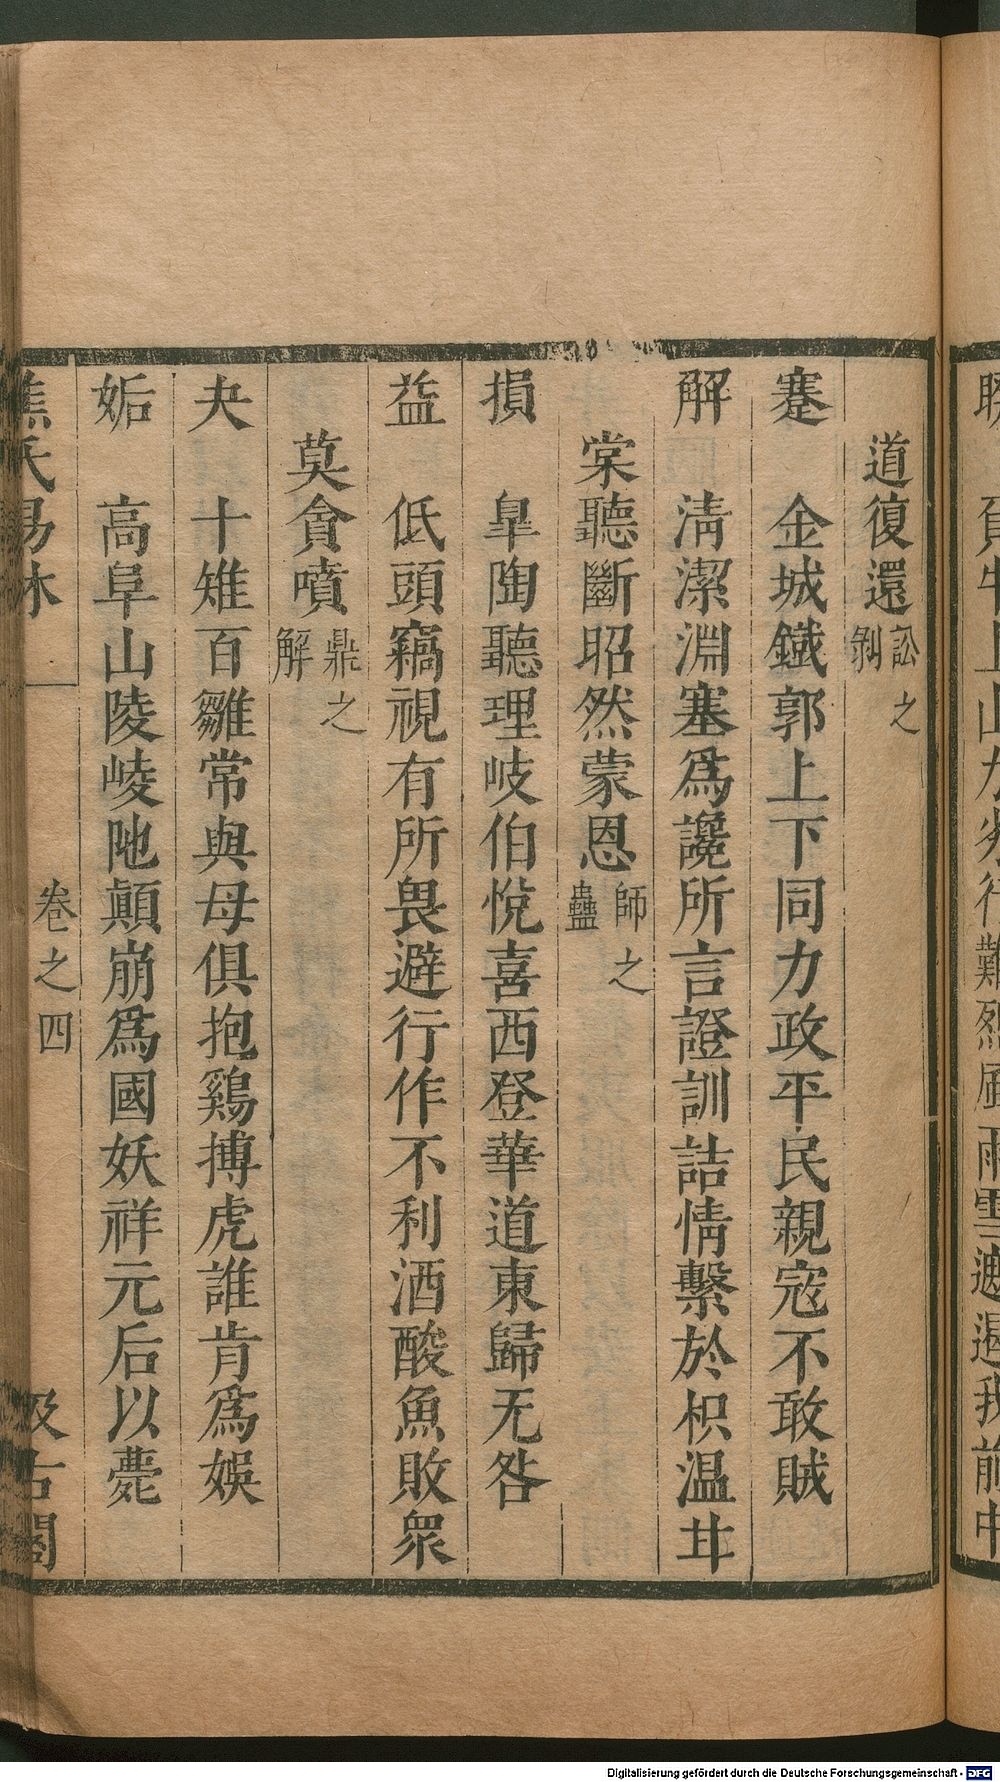 道復還訟之剝
蹇 金城鐵郭上下同力政平民親寇不敢賊
解 清潔淵塞爲讒所言證訓詰情繫於枳温甘
棠聽斷昭然蒙恩師之蠱
損 臯陶聽理岐伯悅喜西登華道東歸无咎
益 低頭竊視有所畏避行作不利酒酸魚敗衆
莫貪嘳鼎之解
夬 十雉百雛常與母俱抱鷄搏虎誰肯爲娛
姤 高阜山陵崚阤顛崩爲國妖祥元后以薨
焦氏易林 卷之四 汲古閣
Digitalisierung gefördert durch die Deutsche Forschungsgemeinschaft - DFG